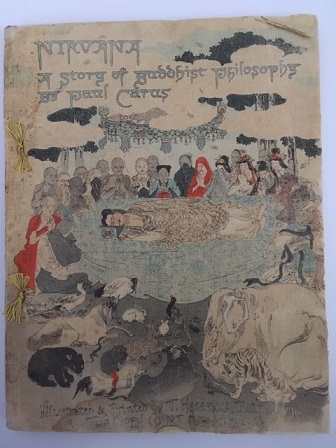 NIRVÂNA
A Story of Buddhist Philosophy
By Paul Carus
Illustrated & Printed by T. Hasegawa
THE OPEN COURT